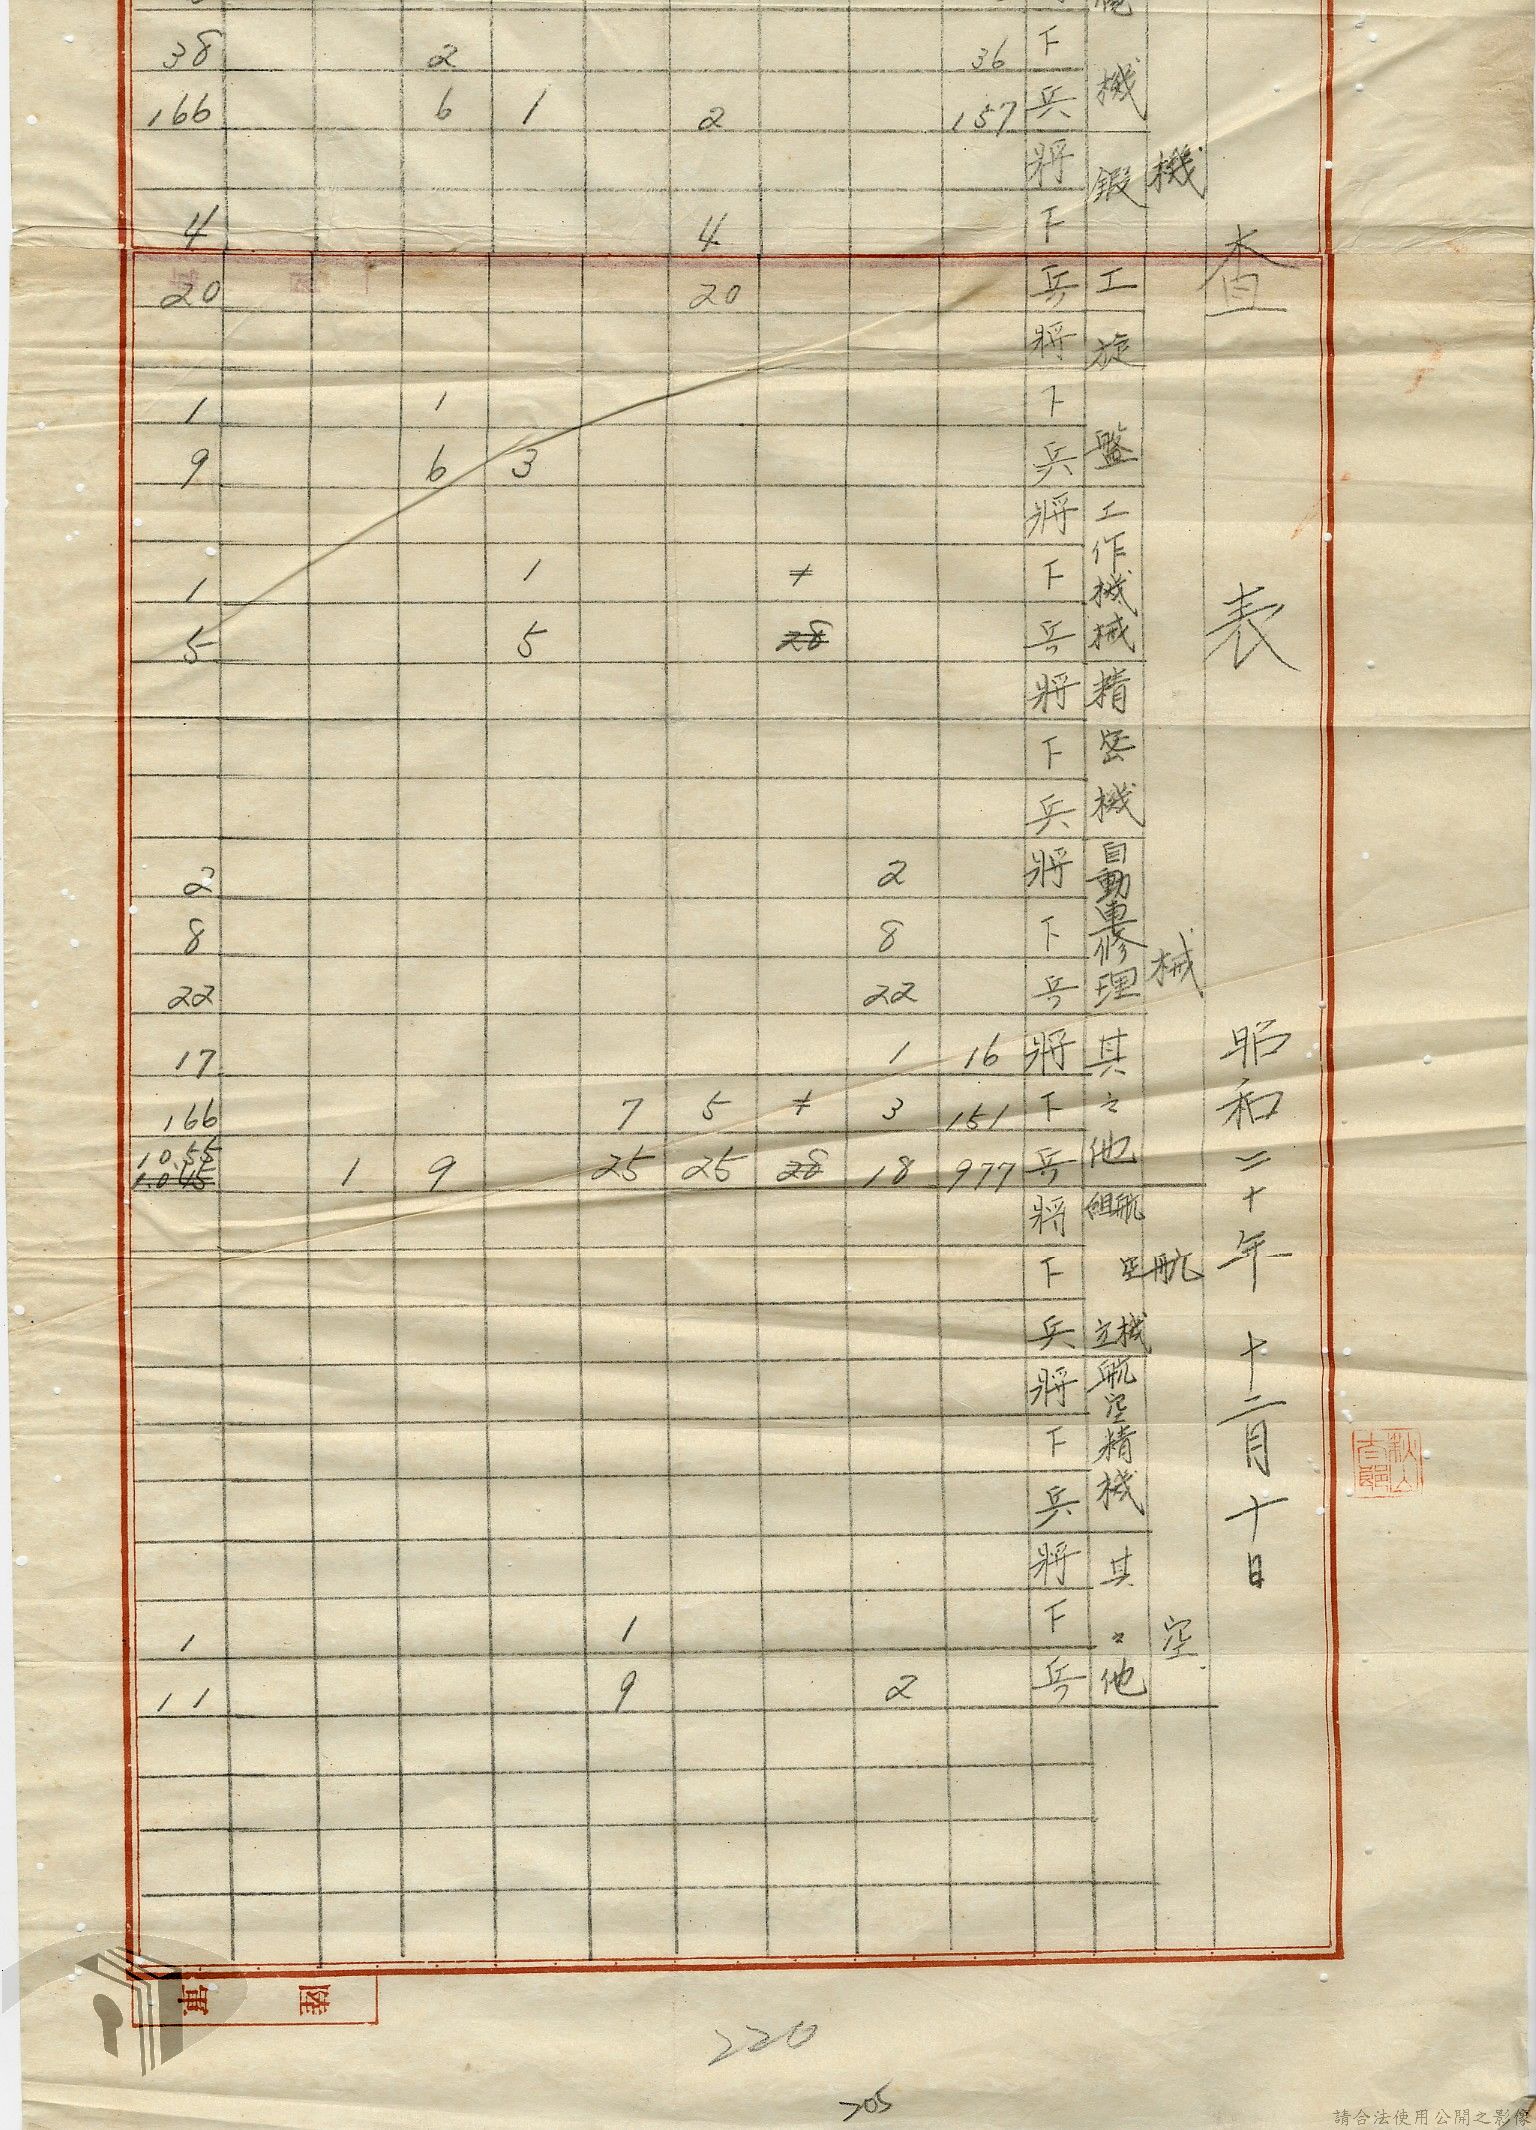 査表 昭和二十年 十二月十日
機械
機
下 36 2 38
兵 157 2 1 6 166
鍛工
将
下 4 4
兵 20 20
旋盤
将
下 1 1
兵 3 6 9
工作機械
将
下 1 1 1
兵 28 5 5
精密機
将
下
兵
自動車修理
将 2 2
下 8 8
兵 22 22
其之他
将 16 1 17
下 151 3 1 5 7 166
兵 977 18 28 25 25 9 1 10.55
1.045
航空
航空機組立
将
下
兵
航空精機
将
下
兵
其之他
将
下 1 1
兵 2 9 11
陸軍
220
705
請合法使用公開之影像